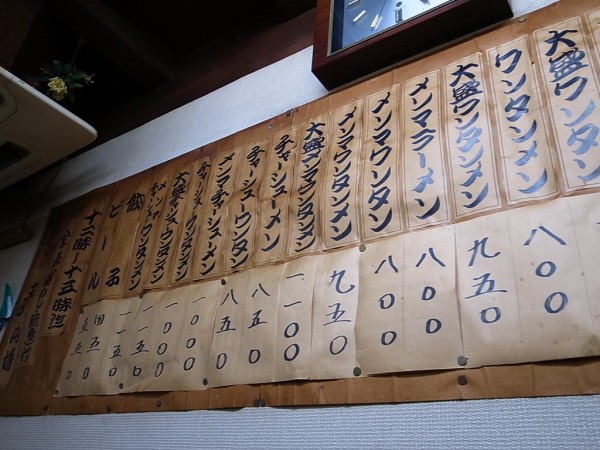 大盛ワンタン
ワンタンメン
八〇〇
大盛ワンタンメン
九五〇
メンマラーメン
八〇〇
メンマワンタン
八〇〇
メンマワンタンメン
九五〇
大盛メンマワンタンメン
一一〇〇
チャーシューメン
八五〇
チャーシューワンタン
八五〇
メンマチャーシューメン
一〇〇〇
チャーシューワンタンメン
一〇〇〇
大盛チャーシューワンタンメン
一一五〇
メンマチャーシューワンタンメン
一一五〇
餃子
四五〇
ビール
五五〇
十二時〜十三時迄